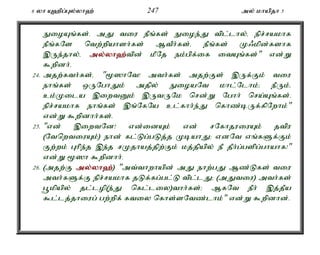 6 லா யுஹிப்புல்லாஹ் 247 அல் மாயிதா 5
நுழையுங்கள். அது வரை நீங்கள் நுழைந்து விட்டால், நிச்சயமாக
நீங்களே வெற்றியாளர்கள் ஆவீர்கள். நீங்கள் முஃமின்களாக
இருந்தால், அல்லாஹ்வின் மீதே நம்பிக்கை வையுங்கள்" என்று
கூறினர்.
24. அதற்கவர்கள், "மூஸாவே! அவர்கள் அதற்குள் இருக்கும் வரை
நாங்கள் ஒருபோதும் அதில் நுழையவே மாட்டோம்; நீரும்,
உம்முடைய இறைவனும் இருவருமே சென்று போர் செய்யுங்கள்.
நிச்சயமாக நாங்கள் இங்கேயே உட்கார்ந்து கொண்டிருக்கிறோம்"
என்று கூறினார்கள்.
25. "என் இறைவனே! என்னையும் என் சகோதரரையும் தவிர
(வேறெவரையும்) நான் கட்டுப்படுத்த முடியாது; எனவே எங்களுக்கும்
குற்றம் புரிந்த இந்த சமுதாயத்திற்கும் மத்தியில் நீ தீர்ப்பளிப்பாயாக!"
என்று மூஸா கூறினார்.
26. (அதற்கு அல்லாஹ்) "அவ்வாறாயின் அது நாற்பது ஆண்டுகள் வரை
அவர்களுக்கு நிச்சயமாக தடுக்கப்பட்டு விட்டது; (அதுவரை) அவர்கள்
பூமியில் தட்டழி(ந்து கெட்டலை)வார்கள்; ஆகவே நீர் இத்தீய
கூட்டத்தாரைப் பற்றிக் கவலை கொள்ளவேண்டாம்" என்று கூறினான்.